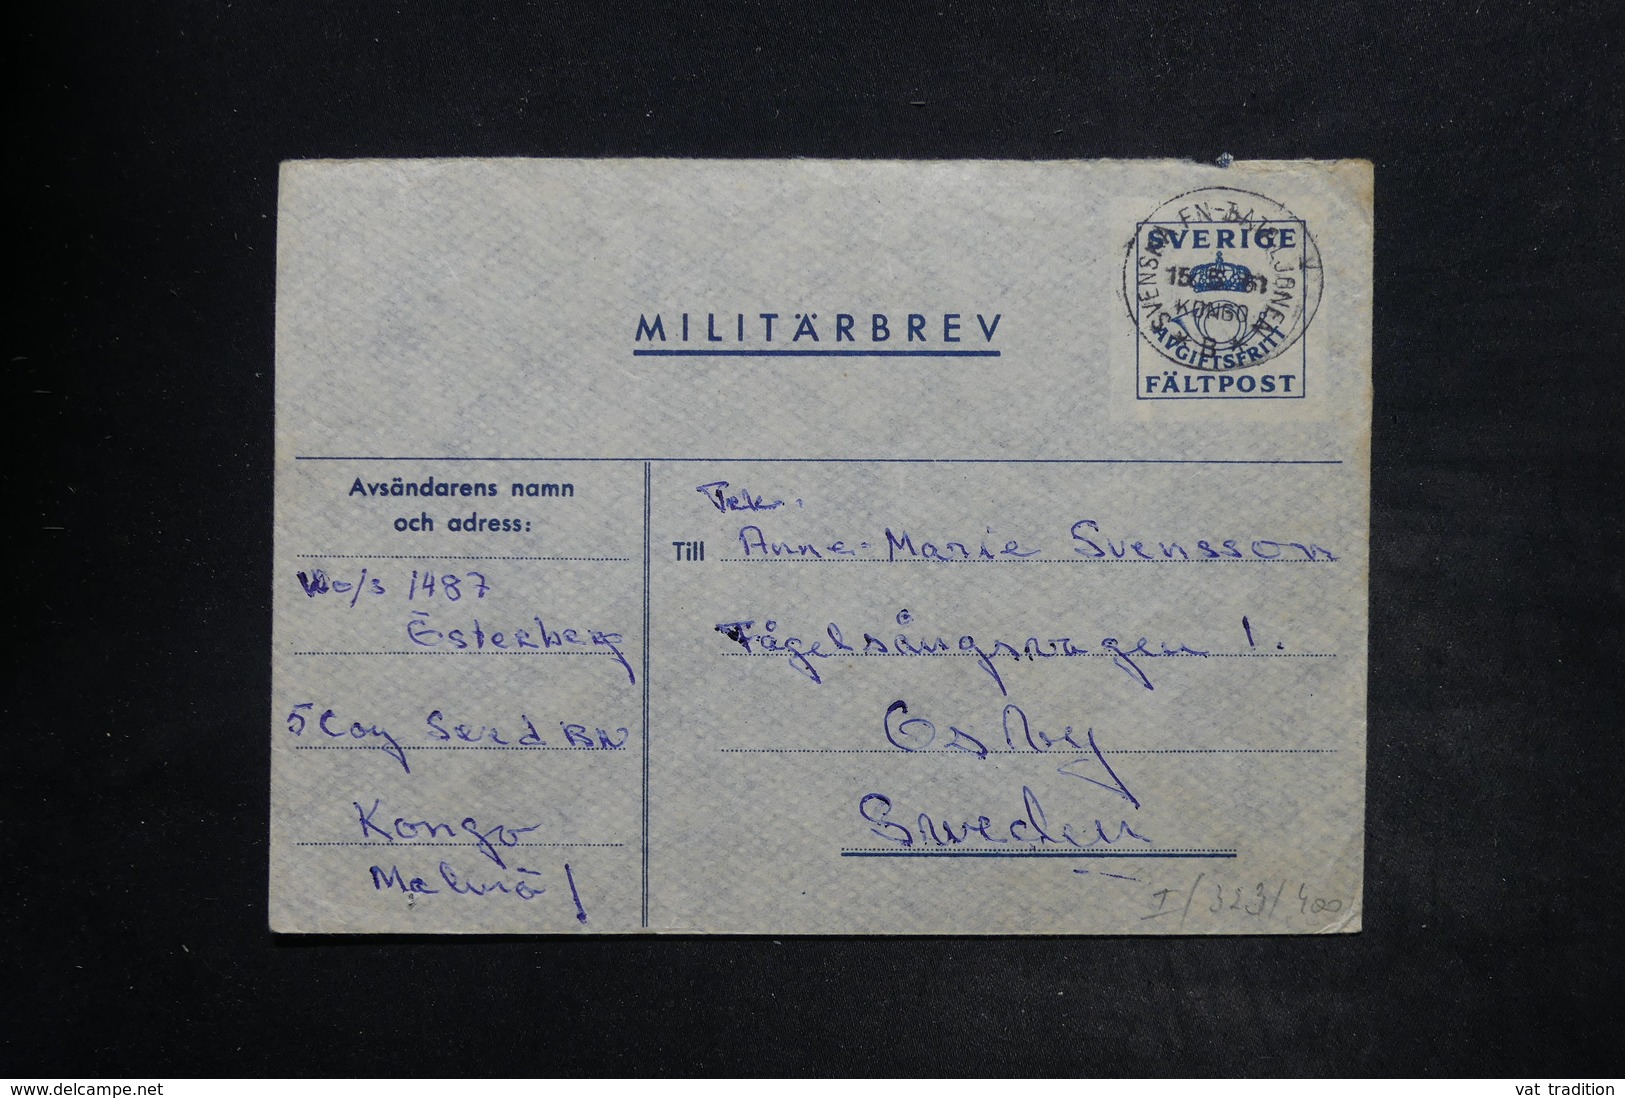 SVENSKA FN-BATALJONEN
15. 5. 61
KONGO
* B *
SVERIGE
AVGIFTSFRITT
FÄLTPOST
MILITÄRBREV
Avsändarens namn
och adress:
1487
Österberg
5 Coy Swed BN
Kongo
Till
Anne-Marie Svensson
Fågelsångsvägen 1.
Osby
Sweden
I/323/400
www.delcampe.net
vat_tradition